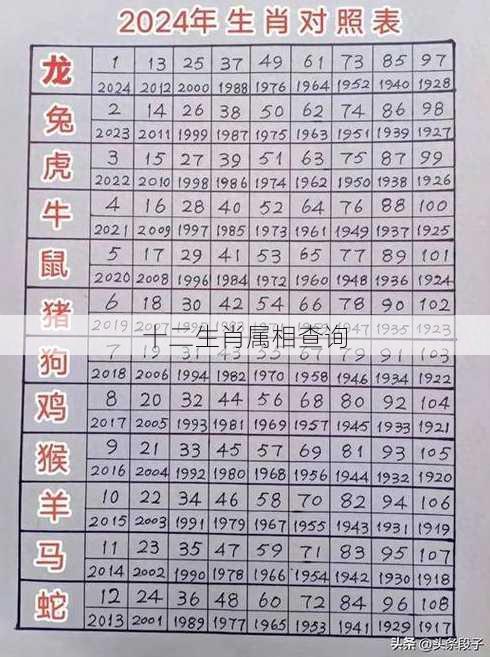 2024年生肖对照表
龙 1 13 25 37 49 61 73 85 97
2024 2012 2000 1988 1976 1964 1952 1940 1928
兔 2 14 26 38 50 62 74 86 98
2023 2011 1999 1987 1975 1963 1951 1939 1927
虎 3 15 27 39 51 63 75 87 99
2022 2010 1998 1986 1974 1962 1950 1938 1926
牛 4 16 28 40 52 64 76 88 100
2021 2009 1997 1985 1973 1961 1949 1937 1925
鼠 5 17 29 41 53 65 77 89 101
2020 2008 1996 1984 1972 1960 1948 1936 1924
猪 6 18 30 42 54 66 78 90 102
2019 1947 1935 1923
十二生肖属相查询
狗 7 19 31 43 55 67 79 91 103
2018 2006 1994 1982 1970 1958 1946 1934 1922
鸡 8 20 32 44 56 68 80 92 104
2017 2005 1993 1981 1969 1957 1945 1933 1921
猴 9 21 33 45 57 69 81 93 105
2016 2004 1992 1980 1968 1956 1944 1932 1920
羊 10 22 34 46 58 70 82 94 106
2015 2003 1991 1979 1967 1955 1943 1931 1919
马 11 23 35 47 59 71 83 95 107
2014 2002 1990 1978 1966 1954 1942 1930 1918
蛇 12 24 36 48 60 72 84 96 108
2013 2001 1989 1977 1965 1953 1941 1929 1917
头条 @头条段子